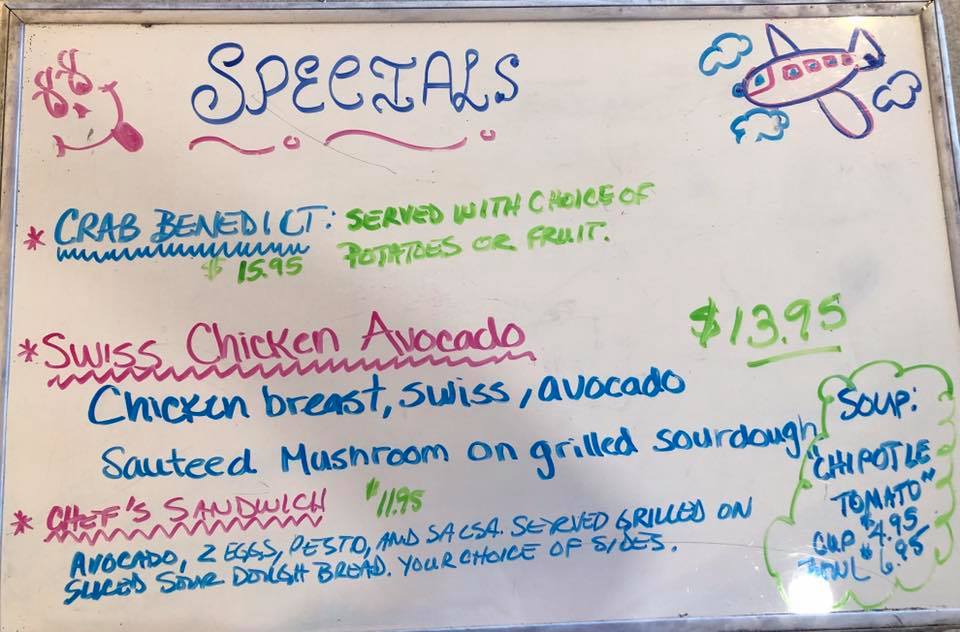 SPECIALS
* CRAB BENEDICT: SERVED WITH CHOICE OF
$ 15.95 POTATOES OR FRUIT.
* Swiss Chicken Avocado $13.95
Chicken breast, swiss, avocado
Sauteed Mushroom on grilled sourdough
* CHEF'S SANDWICH $11.95
AVOCADO, 2 EGGS, PESTO, AND SALSA. SERVED GRILLED ON
SLICED SOUR DOUGH BREAD. YOUR CHOICE OF SIDES.
SOUP:
"CHIPOTLE
TOMATO"
CUP $4.95
BOWL $6.95